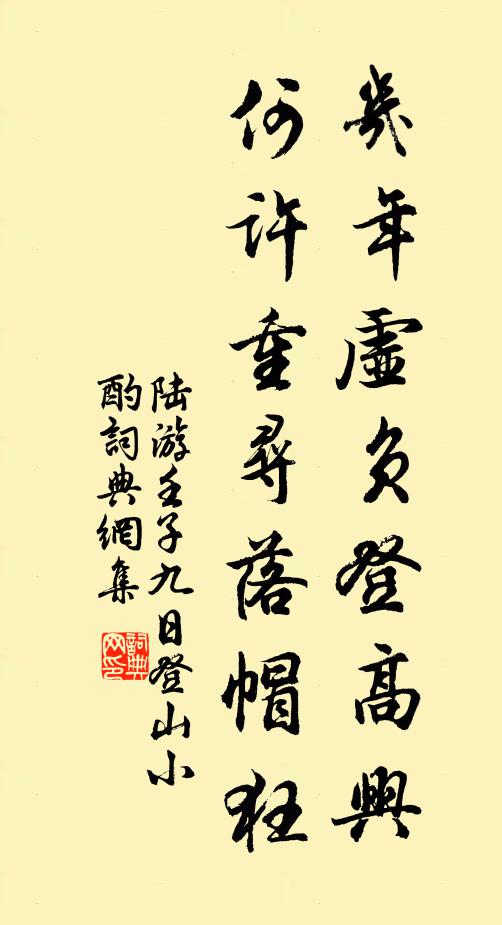 幾年虛負登高興
何許重尋落帽狂
陆游壬子九日登山小
酌詞典網集
詞典
网印